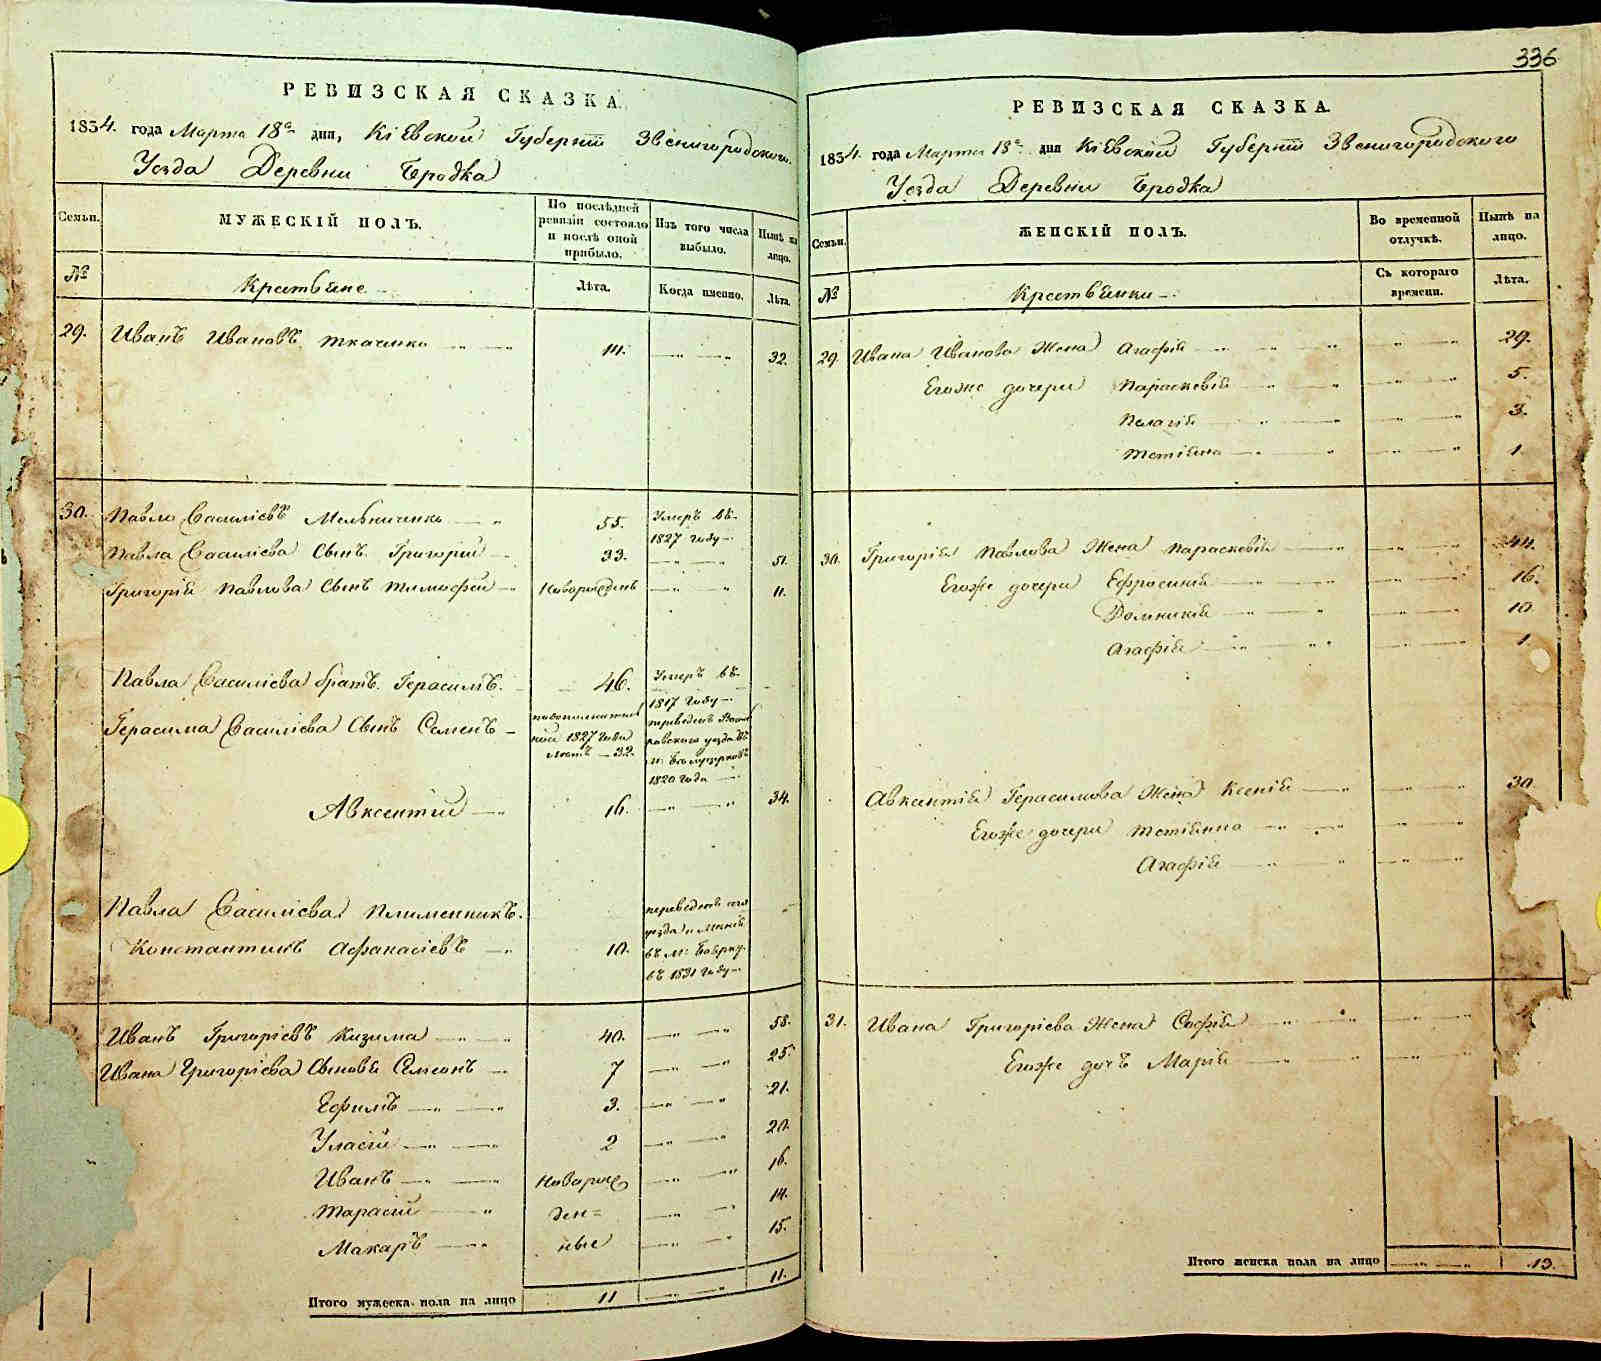 РЕВИЗСКАЯ СКАЗКА.
1834. года Марта 18го дня, Кіевской Губерніи Звенигородского
Уезда Деревни Бродка
Семьи.
МУЖЕСКІЙ ПОЛЪ.
По послѣдней ревизіи состояло и послѣ оной прибыло.
Изъ того числа выбыло.
Нынѣ на лицо.
№
Крестьяне
Лѣта.
Когда именно.
Лѣта.
29. Иванъ Ивановъ Ткаченко 14. 32.
30. Павло Василіевъ Мельниченко 55. Умеръ въ
1827 году
Павла Василіева Сынъ Григорій 33. 51.
Григорія Павлова Сынъ Тимофей Новорожденъ 11.
Павла Василіева братъ Герасимъ 46. Умеръ въ
1817 году
Герасима Василіева Сынъ Семенъ
1827 года
летъ 32.
переведенъ
уезда въ
1820 года
Авксентий 16. 34.
Павла Василіева Племенникъ
Константинъ Афанасіевъ 10.
переведенъ
уезда
въ м:
въ 1831 году
Иванъ Григоріевъ Кизима 40. 58.
Ивана Григоріева Сыновья Симеонъ 7 25.
Ефимъ 3. 21.
Уласій 2 20.
Иванъ Новорож 16.
Тарасій ден= 14.
Макаръ ные 15.
Итого мужеска пола на лицо 11 11.
336
РЕВИЗСКАЯ СКАЗКА.
1834. года Марта 18го дня Кіевской Губерніи Звенигородского
Уезда Деревни Бродка
Семьи.
ЖЕНСКІЙ ПОЛЪ.
Во временной отлучкѣ.
Нынѣ на лицо.
№
Крестьянки
Съ котораго времени.
Лѣта.
29. Ивана Иванова Жена Агафія 29.
Егоже дочери Параскевія 5.
Пелагія 3.
Тетіяна 1
30. Григорія Павлова Жена Параскевія 44.
Егоже дочери Ефросинія 16.
Домникія 10
Агафія 1
Авксентія Герасимова Жена Ксенія 30
Егоже дочери Тетіянна
Агафія
31. Ивана Григоріева Жена Софія
Егоже дочъ Марія
Итого женска пола на лицо 13.